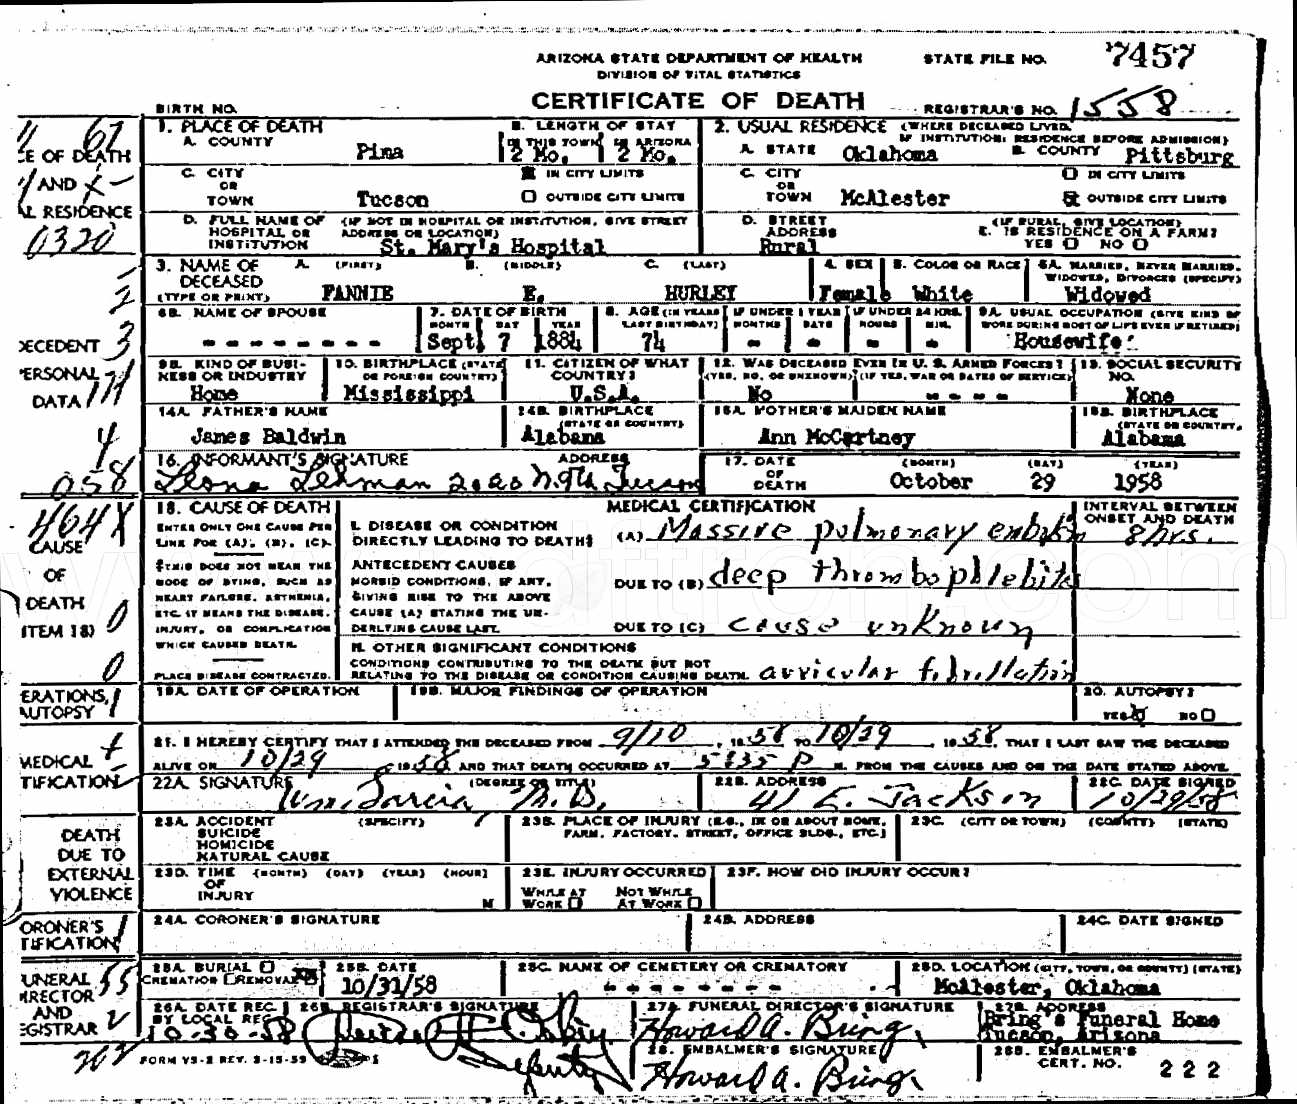 ARIZONA STATE DEPARTMENT OF HEALTH
DIVISION OF VITAL STATISTICS
CERTIFICATE OF DEATH
STATE FILE NO. 7457
BIRTH NO.
REGISTRAR'S NO. 1558
1. PLACE OF DEATH
A. COUNTY Pima
B. LENGTH OF STAY
IN THIS TOWN 2 Mo. IN ARIZONA 2 Mo.
2. USUAL RESIDENCE (WHERE DECEASED LIVED.
IF INSTITUTION: RESIDENCE BEFORE ADMISSION)
A. STATE Oklahoma B. COUNTY Pittsburg
C. CITY OR TOWN Tucson
IN CITY LIMITS
OUTSIDE CITY LIMITS
C. CITY OR TOWN McAlester
IN CITY LIMITS
OUTSIDE CITY LIMITS
D. FULL NAME OF HOSPITAL OR INSTITUTION (IF NOT IN HOSPITAL OR INSTITUTION, GIVE STREET ADDRESS OR LOCATION)
St. Mary's Hospital
D. STREET ADDRESS (IF RURAL, GIVE LOCATION)
Rural
E. IS RESIDENCE ON A FARM?
YES NO
3. NAME OF DECEASED (TYPE OR PRINT)
A. (FIRST) B. (MIDDLE) C. (LAST)
FANNIE E. HURLEY
4. SEX Female
5. COLOR OR RACE White
6A. MARRIED, NEVER MARRIED, WIDOWED, DIVORCED (SPECIFY)
Widowed
6B. NAME OF SPOUSE
- - - - - - - -
7. DATE OF BIRTH
MONTH DAY YEAR
Sept 7 1884
8. AGE (IN YEARS LAST BIRTHDAY) 74
IF UNDER 1 YEAR MONTHS DAYS
IF UNDER 24 HRS. HOURS MIN.
9A. USUAL OCCUPATION (GIVE KIND OF WORK DURING MOST OF LIFE EVEN IF RETIRED)
Housewife
9B. KIND OF BUSINESS OR INDUSTRY
Home
10. BIRTHPLACE (STATE OR FOREIGN COUNTRY)
Mississippi
11. CITIZEN OF WHAT COUNTRY?
U.S.A.
12. WAS DECEASED EVER IN U. S. ARMED FORCES?
(YES, NO, OR UNKNOWN) (IF YES, WAR OR DATES OF SERVICE)
No - - - -
13. SOCIAL SECURITY NO.
None
14A. FATHER'S NAME
James Baldwin
14B. BIRTHPLACE (STATE OR COUNTRY)
Alabama
15A. MOTHER'S MAIDEN NAME
Ann McCartney
15B. BIRTHPLACE (STATE OR COUNTRY)
Alabama
16. INFORMANT'S SIGNATURE ADDRESS
Leona Lehman 2020 N. 9th Tucson
17. DATE OF DEATH (MONTH) (DAY) (YEAR)
October 29 1958
18. CAUSE OF DEATH
ENTER ONLY ONE CAUSE PER LINE FOR (A), (B), (C).
THIS DOES NOT MEAN THE MODE OF DYING, SUCH AS HEART FAILURE, ASTHENIA, ETC. IT MEANS THE DISEASE, INJURY, OR COMPLICATION WHICH CAUSED DEATH.
PLACE DISEASE CONTRACTED.
MEDICAL CERTIFICATION
INTERVAL BETWEEN ONSET AND DEATH
I. DISEASE OR CONDITION DIRECTLY LEADING TO DEATH
(A) Massive pulmonary embolism 8 hrs.
ANTECEDENT CAUSES
MORBID CONDITIONS, IF ANY, GIVING RISE TO THE ABOVE CAUSE (A) STATING THE UNDERLYING CAUSE LAST.
DUE TO (B) deep thrombophlebitis
DUE TO (C) cause unknown
II. OTHER SIGNIFICANT CONDITIONS
CONDITIONS CONTRIBUTING TO THE DEATH BUT NOT RELATING TO THE DISEASE OR CONDITION CAUSING DEATH.
auricular fibrillation
19A. DATE OF OPERATION
19B. MAJOR FINDINGS OF OPERATION
20. AUTOPSY?
YES NO
21. I HEREBY CERTIFY THAT I ATTENDED THE DECEASED FROM 9/10, 1958 TO 10/29, 1958, THAT I LAST SAW THE DECEASED
ALIVE ON 10/29 1958 AND THAT DEATH OCCURRED AT 5:35 P M. FROM THE CAUSES AND ON THE DATE STATED ABOVE.
22A. SIGNATURE (DEGREE OR TITLE)
Wm. Garcia M.D.
22B. ADDRESS
41 E. Jackson
22C. DATE SIGNED
10/29/58
23A. ACCIDENT SUICIDE HOMICIDE NATURAL CAUSE (SPECIFY)
23B. PLACE OF INJURY (E.G., IN OR ABOUT HOME, FARM, FACTORY, STREET, OFFICE BLDG., ETC.)
23C. (CITY OR TOWN) (COUNTY) (STATE)
23D. TIME OF INJURY (MONTH) (DAY) (YEAR) (HOUR)
M
23E. INJURY OCCURRED
WHILE AT WORK NOT WHILE AT WORK
23F. HOW DID INJURY OCCUR?
24A. CORONER'S SIGNATURE
24B. ADDRESS
24C. DATE SIGNED
25A. BURIAL CREMATION REMOVAL
25B. DATE
10/31/58
25C. NAME OF CEMETERY OR CREMATORY
- - - - - - -
25D. LOCATION (CITY, TOWN, OR COUNTY) (STATE)
McAlester, Oklahoma
26A. DATE REC. BY LOCAL REG.
10-30-58
26B. REGISTRAR'S SIGNATURE
Deputy
27A. FUNERAL DIRECTOR'S SIGNATURE
Howard A. Bring
27B. ADDRESS
Bring's Funeral Home
Tucson, Arizona
28. EMBALMER'S SIGNATURE
Howard A. Bring
28B. EMBALMER'S CERT. NO. 222
FORM VS-2 REV.
67
CE OF DEATH
AND X-
AL RESIDENCE
0320
2
DECEDENT 3
PERSONAL
DATA 171
4
058
464X
CAUSE
OF
DEATH
ITEM 18) 0
0
ERATIONS,
AUTOPSY 1
MEDICAL
TIFICATION
DEATH
DUE TO
EXTERNAL
VIOLENCE
ORONER'S
TIFICATION 1
UNERAL 55
IRECTOR
AND
EGISTRAR
202